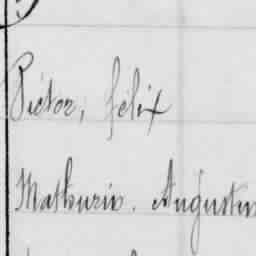 Pictor, félix
Mathurin. Augustin